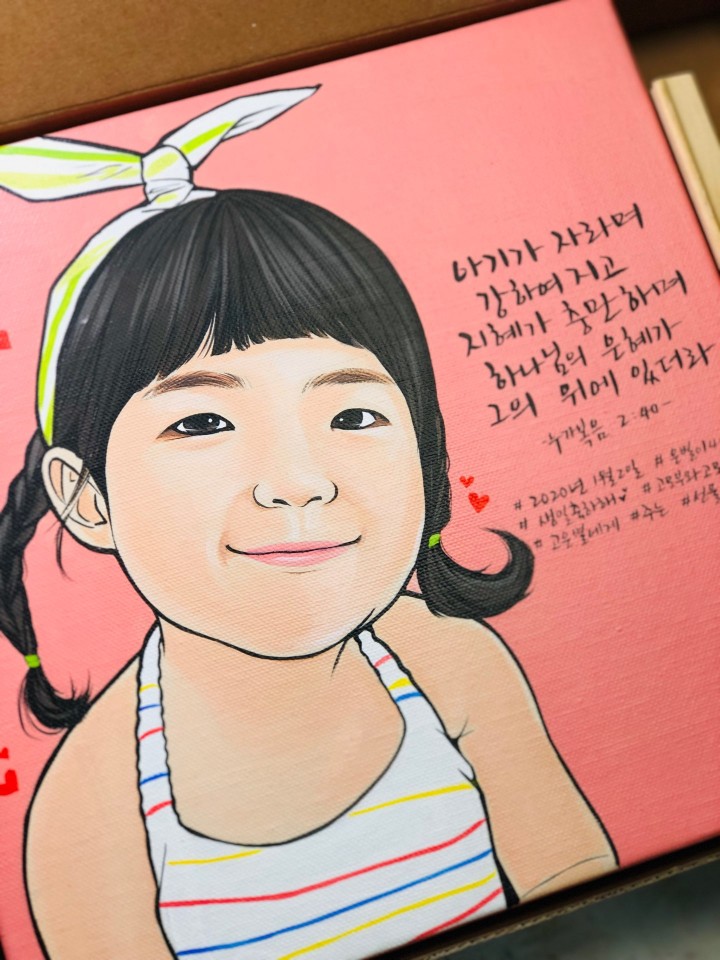 아기가 자라며
강하여지고
지혜가 충만하며
하나님의 은혜가
그의 위에 있더라
-누가복음 2:40-
# 2020년 1월 2일 #
# 생일축하해♥
# 고운별에게 #주는 #선물